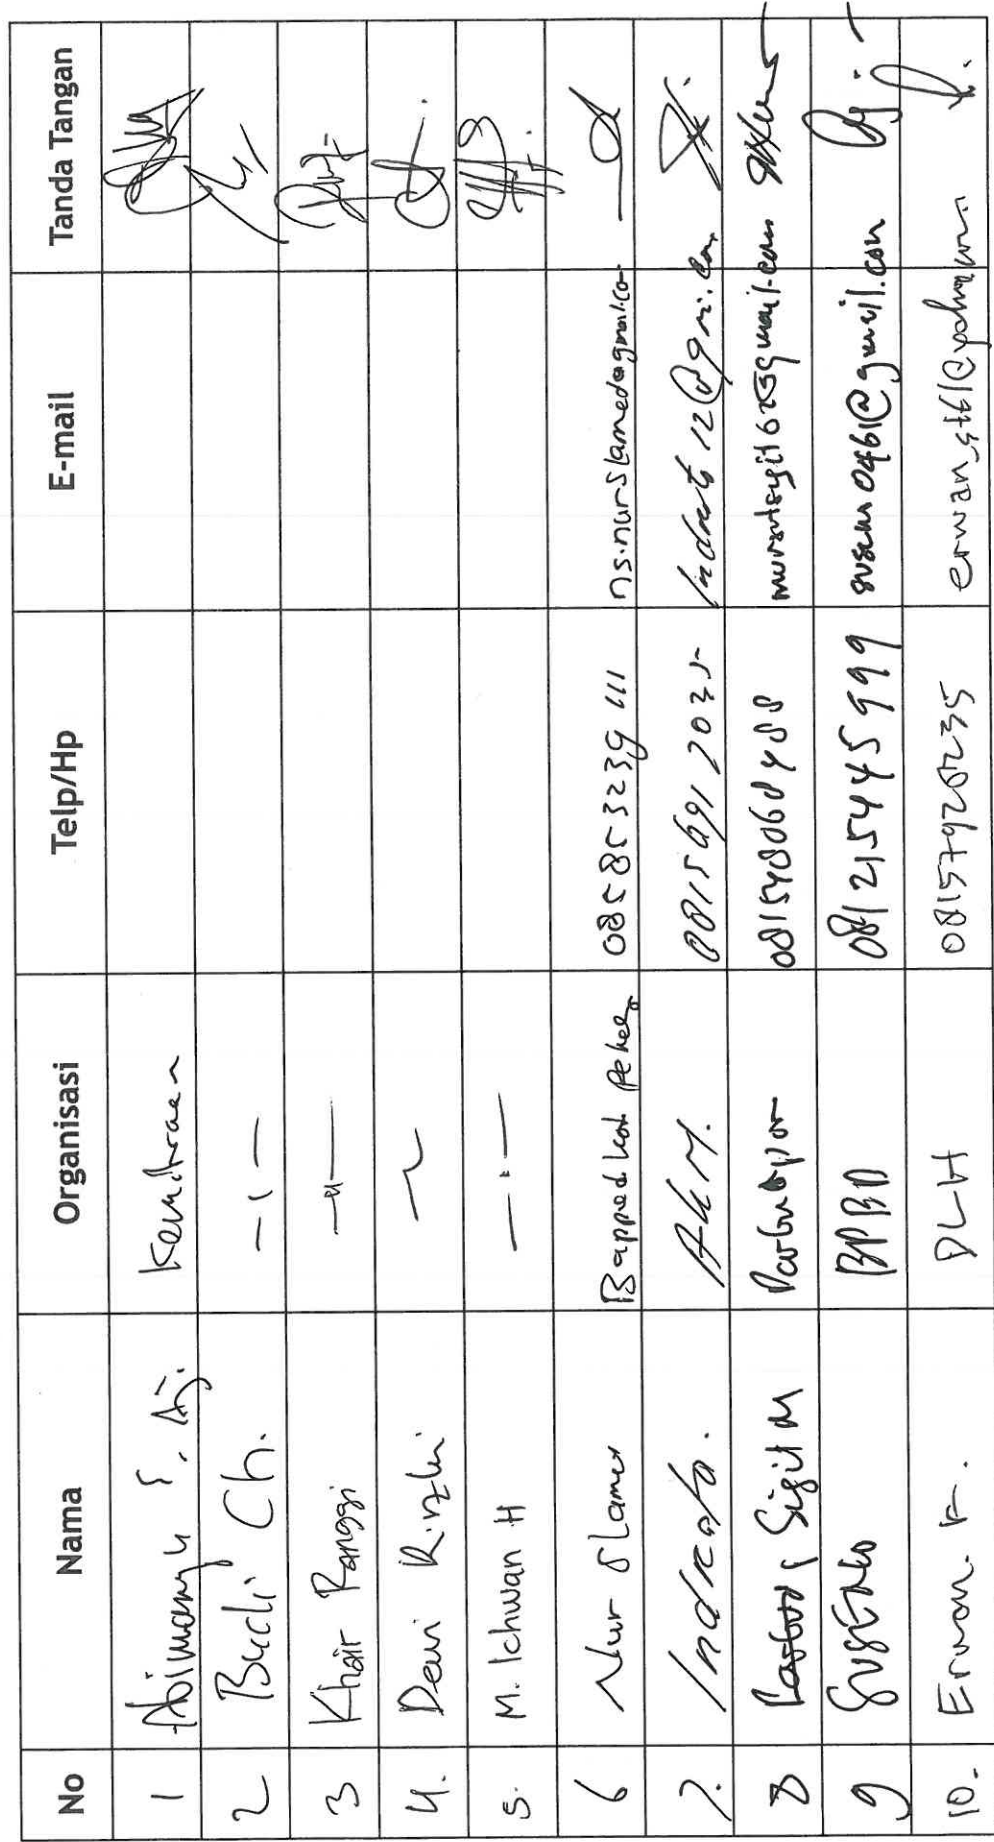 No Nama Organisasi Telp/Hp E-mail Tanda Tangan
1 Abimanyu S. Aji. Kemitraan
2 Budi Ch. - ı -
3 Khair Ranggi - " -
4. Dewi Rizki ~
5. M. Ichwan H - . -
6 Nur Slamet Bapped Kota Pekal 085853239111 ns.nurslamed@gmail.co
7. Indrato. 08156912035 Indrato12@
8 Sigit M 081548060488
9 SUSENO BPBD 081215445999 suseno0461@gmail.com
10. Erwan. K. DLH 081579920235 erwan_stt61@yahoo.com